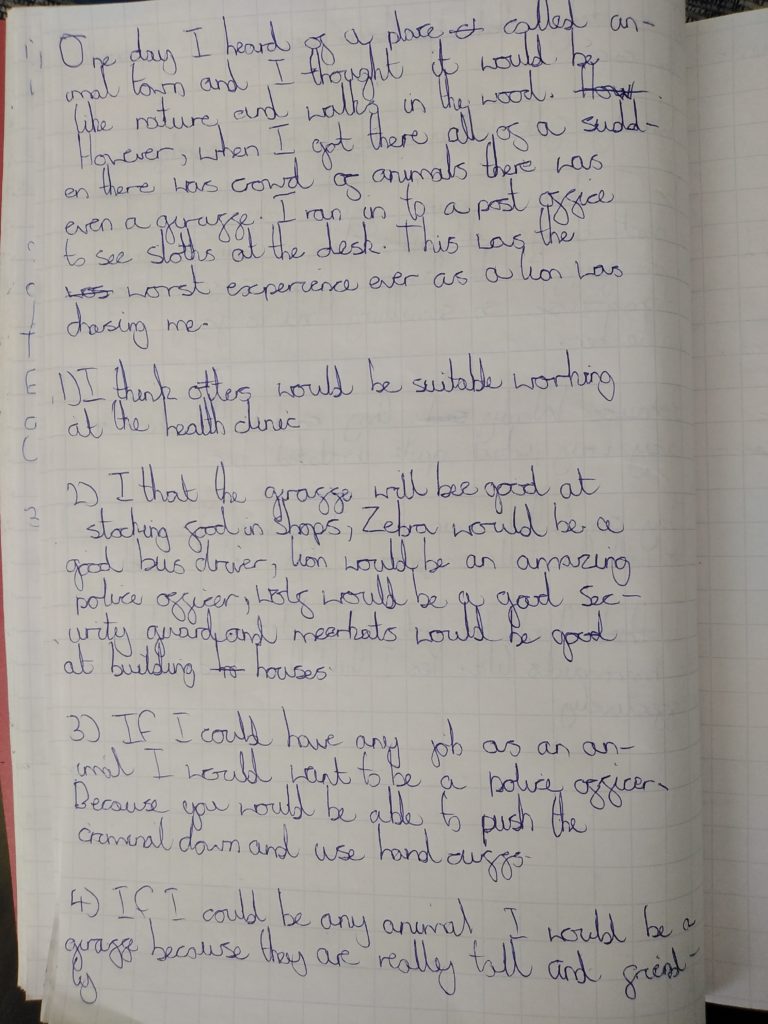 One day I heard of a place called an-
imal town and I thought it would be
like nature and walks in the wood. How
However, when I got there all of a sudd-
en there was crowd of animals there was
even a giraffe. I ran in to a post office
to see sloths at the desk. This was the
was worst experience ever as a lion was
chasing me.
1) I think otters would be suitable working
at the health clinic
2) I that the giraffe will bee good at
stocking food in shops, Zebra would be a
good bus driver, lion would be an amazing
police officer, wolf would be a good sec-
urity guard and meerkats would be good
at building to houses.
3) If I could have any job as an an-
imal I would want to be a police officer.
Because you would be able to push the
criminal down and use hand cuffs.
4) If I could be any animal I would be a
giraffe because they are really tall and friend-
ly